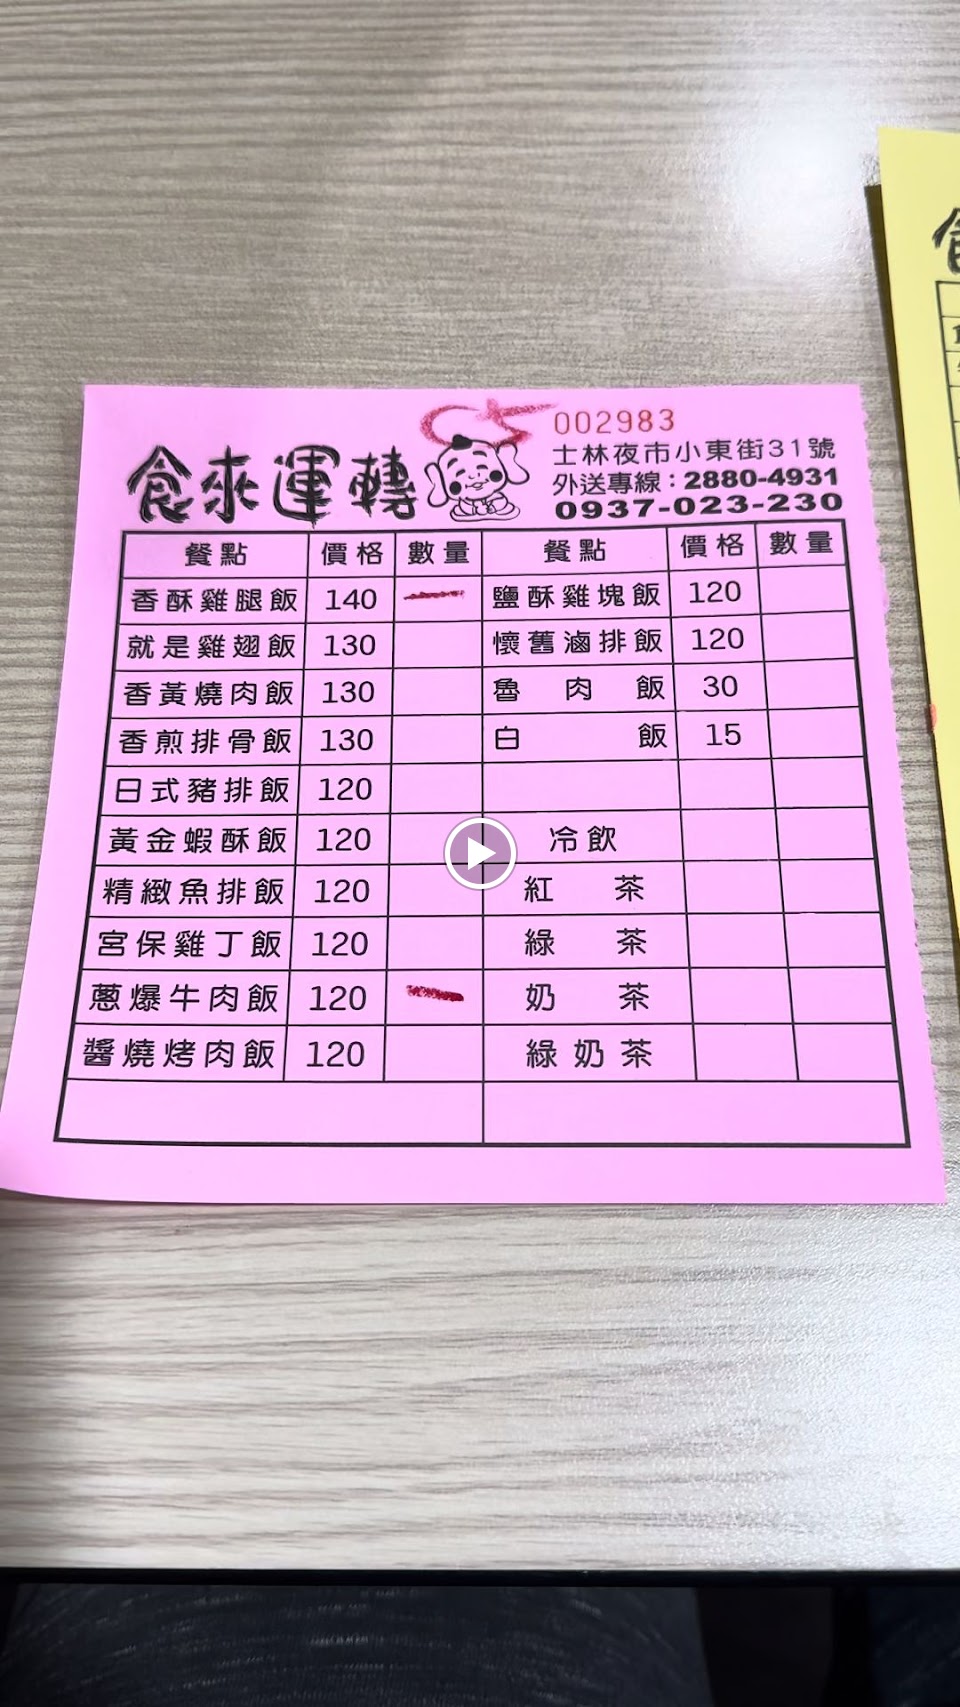 食來運轉
002983
士林夜市小東街31號
外送專線：2880-4931
0937-023-230
餐點 價格 數量 餐點 價格 數量
香酥雞腿飯 140 鹽酥雞塊飯 120
就是雞翅飯 130 懷舊滷排飯 120
香黃燒肉飯 130 魯肉飯 30
香煎排骨飯 130 白飯 15
日式豬排飯 120
黃金蝦酥飯 120 冷飲
精緻魚排飯 120 紅茶
宮保雞丁飯 120 綠茶
蔥爆牛肉飯 120 奶茶
醬燒烤肉飯 120 綠奶茶